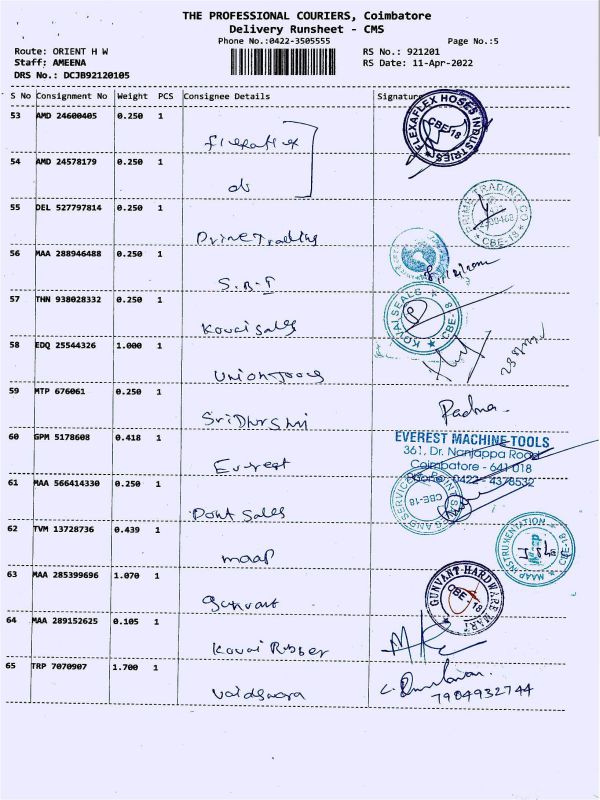 THE PROFESSIONAL COURIERS, Coimbatore
Delivery Runsheet - CMS
Phone No.:0422-3505555 Page No.:5
Route: ORIENT H W RS No.: 921201
Staff: AMEENA RS Date: 11-Apr-2022
DRS No.: DCJB92120105
S No Consignment No Weight PCS Consignee Details Signature
53 AMD 24600405 0.250 1
FLEXAFLEX HOSES INDUSTRIES CBE-18
54 AMD 24578179 0.250 1
do
55 DEL 527797814 0.250 1
PRIME TRADING CO CBE-18
56 MAA 288946488 0.250 1
S.B.I
57 THN 938028332 0.250 1
Kovai Sales
KOVAI SEALS CBE-18
58 EDQ 25544326 1.000 1
Union
59 MTP 676061 0.250 1
Padma
60 GPM 5178608 0.418 1
Everest
EVEREST MACHINE TOOLS
361, Dr. Nanjappa Road
Coimbatore - 641 018
Phone: 0422 - 4378532
61 MAA 566414330 0.250 1
Sales
SALES AND SERVICE CBE-18
62 TVM 13728736 0.439 1
maap
MAAP INSTRUMENTATION CBE-18
63 MAA 285399696 1.070 1
gunvant
GUNVANT HARDWARE MART CBE-18
64 MAA 289152625 0.105 1
Kovai Rubber
65 TRP 7070907 1.700 1
7904932744